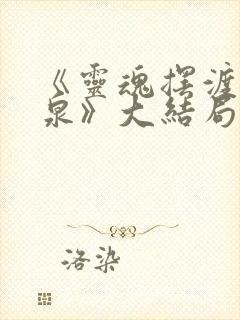 《靈魂擺渡黃
泉》大結局
洛染